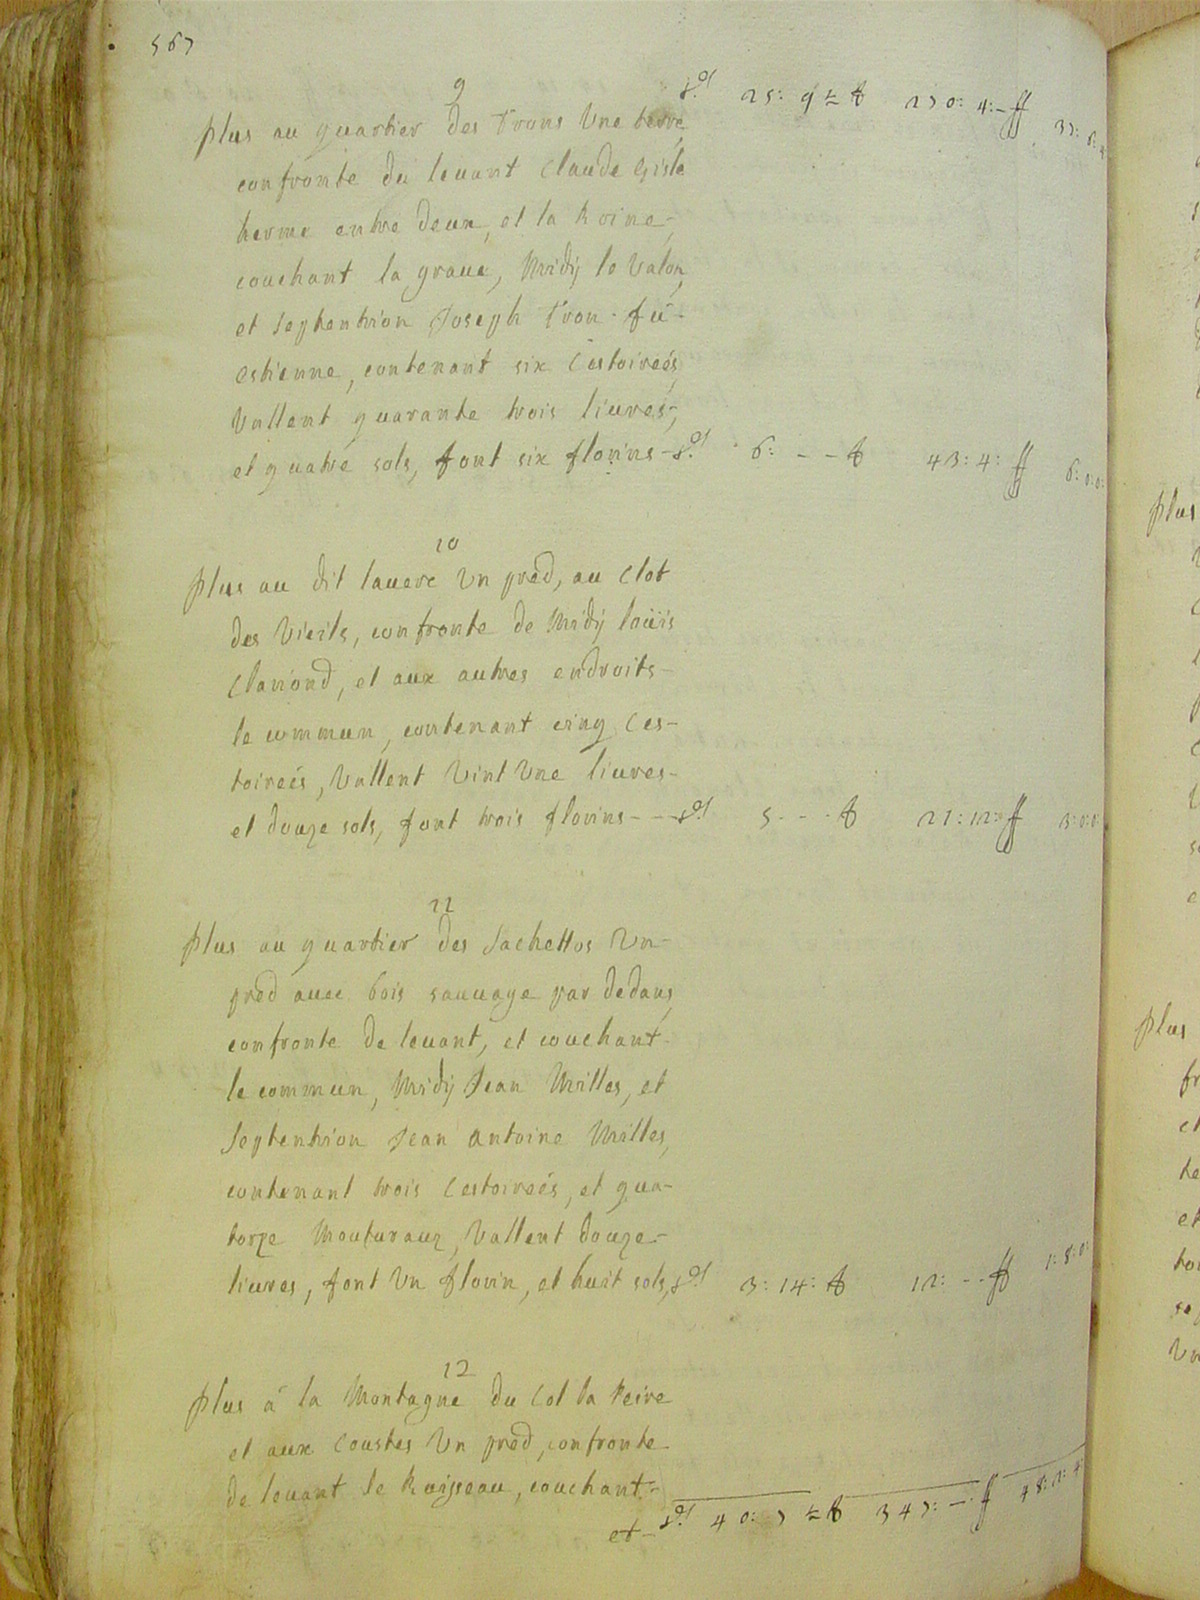 567
25: 9 ½ 270: 4: - ff 37: 6: 4
9
plus au quartier des Trons Une terre
confronte du leuant Claude Gisle
herme entre deux, et la Roine -
couchant la graue, Midÿ le Valon,
et Septentrion Joseph Tron - fû -
estienne, contenant six Cestoireés,
Vallent quarante trois liures -,
et quatre sols, font six florins - 6: - - 43: 4: ff 6: 0: 0:
10
plus au dit lauere Un pred, au Clot
des Vieils, confronte de Midÿ loüis
Clariond, et aux autres endroits -
le commun, contenant cinq Ces -
toireés, Vallent Vint Une liures -
et douze sols, font trois florins - - - 5 - - - 21: 12: ff 3: 0: 0:
11
plus au quartier des Sachettos Un -
pred auec bois sauuage par dedans,
confronte de leuant, et couchant -
le commun, Midÿ Jean Milles, et
Septentrion Jean Antoine Milles,
contenant trois Cestoireés, et qua -
torze Mouturaux, Vallent douze -
liures, font Un florin, et huit sols, 3: 14: 12: - - ff 1: 8: 0:
12
plus á la Montagne du Col la Peire
et aux Coustes Un pred, confronte
de leuant le Ruisseau, couchant -
et - 40: 7 ½ 347: - ff 48: 2: 4